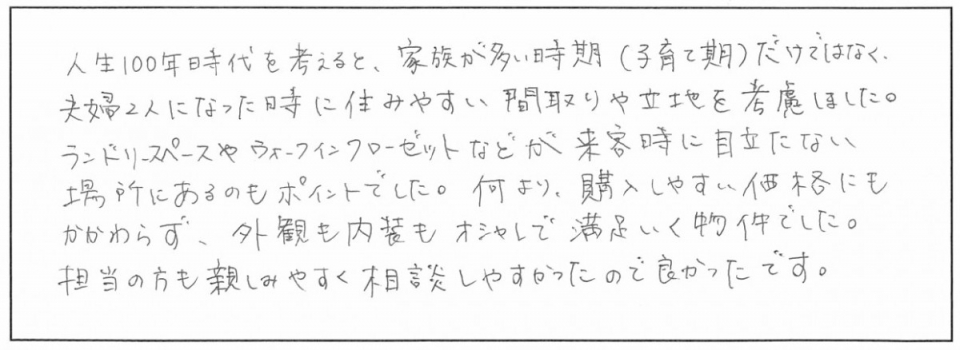 人生100年時代を考えると、家族が多い時期（子育て期）だけではなく、
夫婦2人になった時に住みやすい間取りや立地を考慮しました。
ランドリースペースやウォークインクローゼットなどが来客時に目立たない
場所にあるのもポイントでした。何より、購入しやすい価格にも
かかわらず、外観も内装もオシャレで満足いく物件でした。
担当の方も親しみやすく相談しやすかったので良かったです。